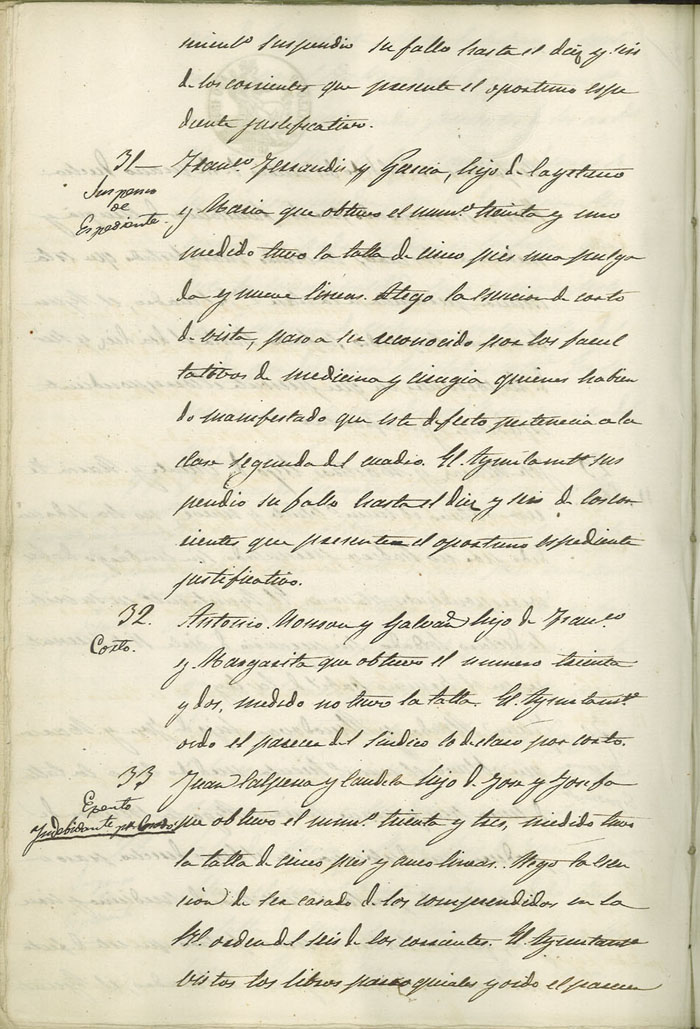 mient.º suspendio su fallo hasta el diez y seis
de los corrientes que presente el oportuno espe
diente justificativo.
31 Fran.co Ferrandis y Garcia, hijo de Cayetano
Suspenso
de
Espediente
y Maria que obtuvo el num.º treinta y uno
medido tuvo la talla de cinco pies una pulga
da y nueve lineas. Alego la esencion de corto
de vista, paso a ser reconocido por los facul
tativos de medicina y cirugia quienes habien
do manifestado que este defecto pertenecia a la
clase segunda del cuadro. El Ayuntamt.º sus
pendio su fallo hasta el diez y seis de los cor
rientes que presente el oportuno espediente
justificativo.
32. Antonio Monzon y Galvañ hijo de Fran.co
Corto.
y Margarita que obtuvo el numero treinta
y dos, medido no tuvo la talla. El Ayuntamt.º
oido el parecer del Sindico lo declaro por corto.
33 Juan y Candela hijo de Jose y Josefa
Esento
por
que obtuvo el num.º treinta y tres, medido tuvo
la talla de cinco pies y lineas. Alego la esen
cion de ser casado de los comprendidos en la
Rl. orden del seis de los corrientes. El Ayuntamt.º
vistos los libros parroquiales y oido el parecer